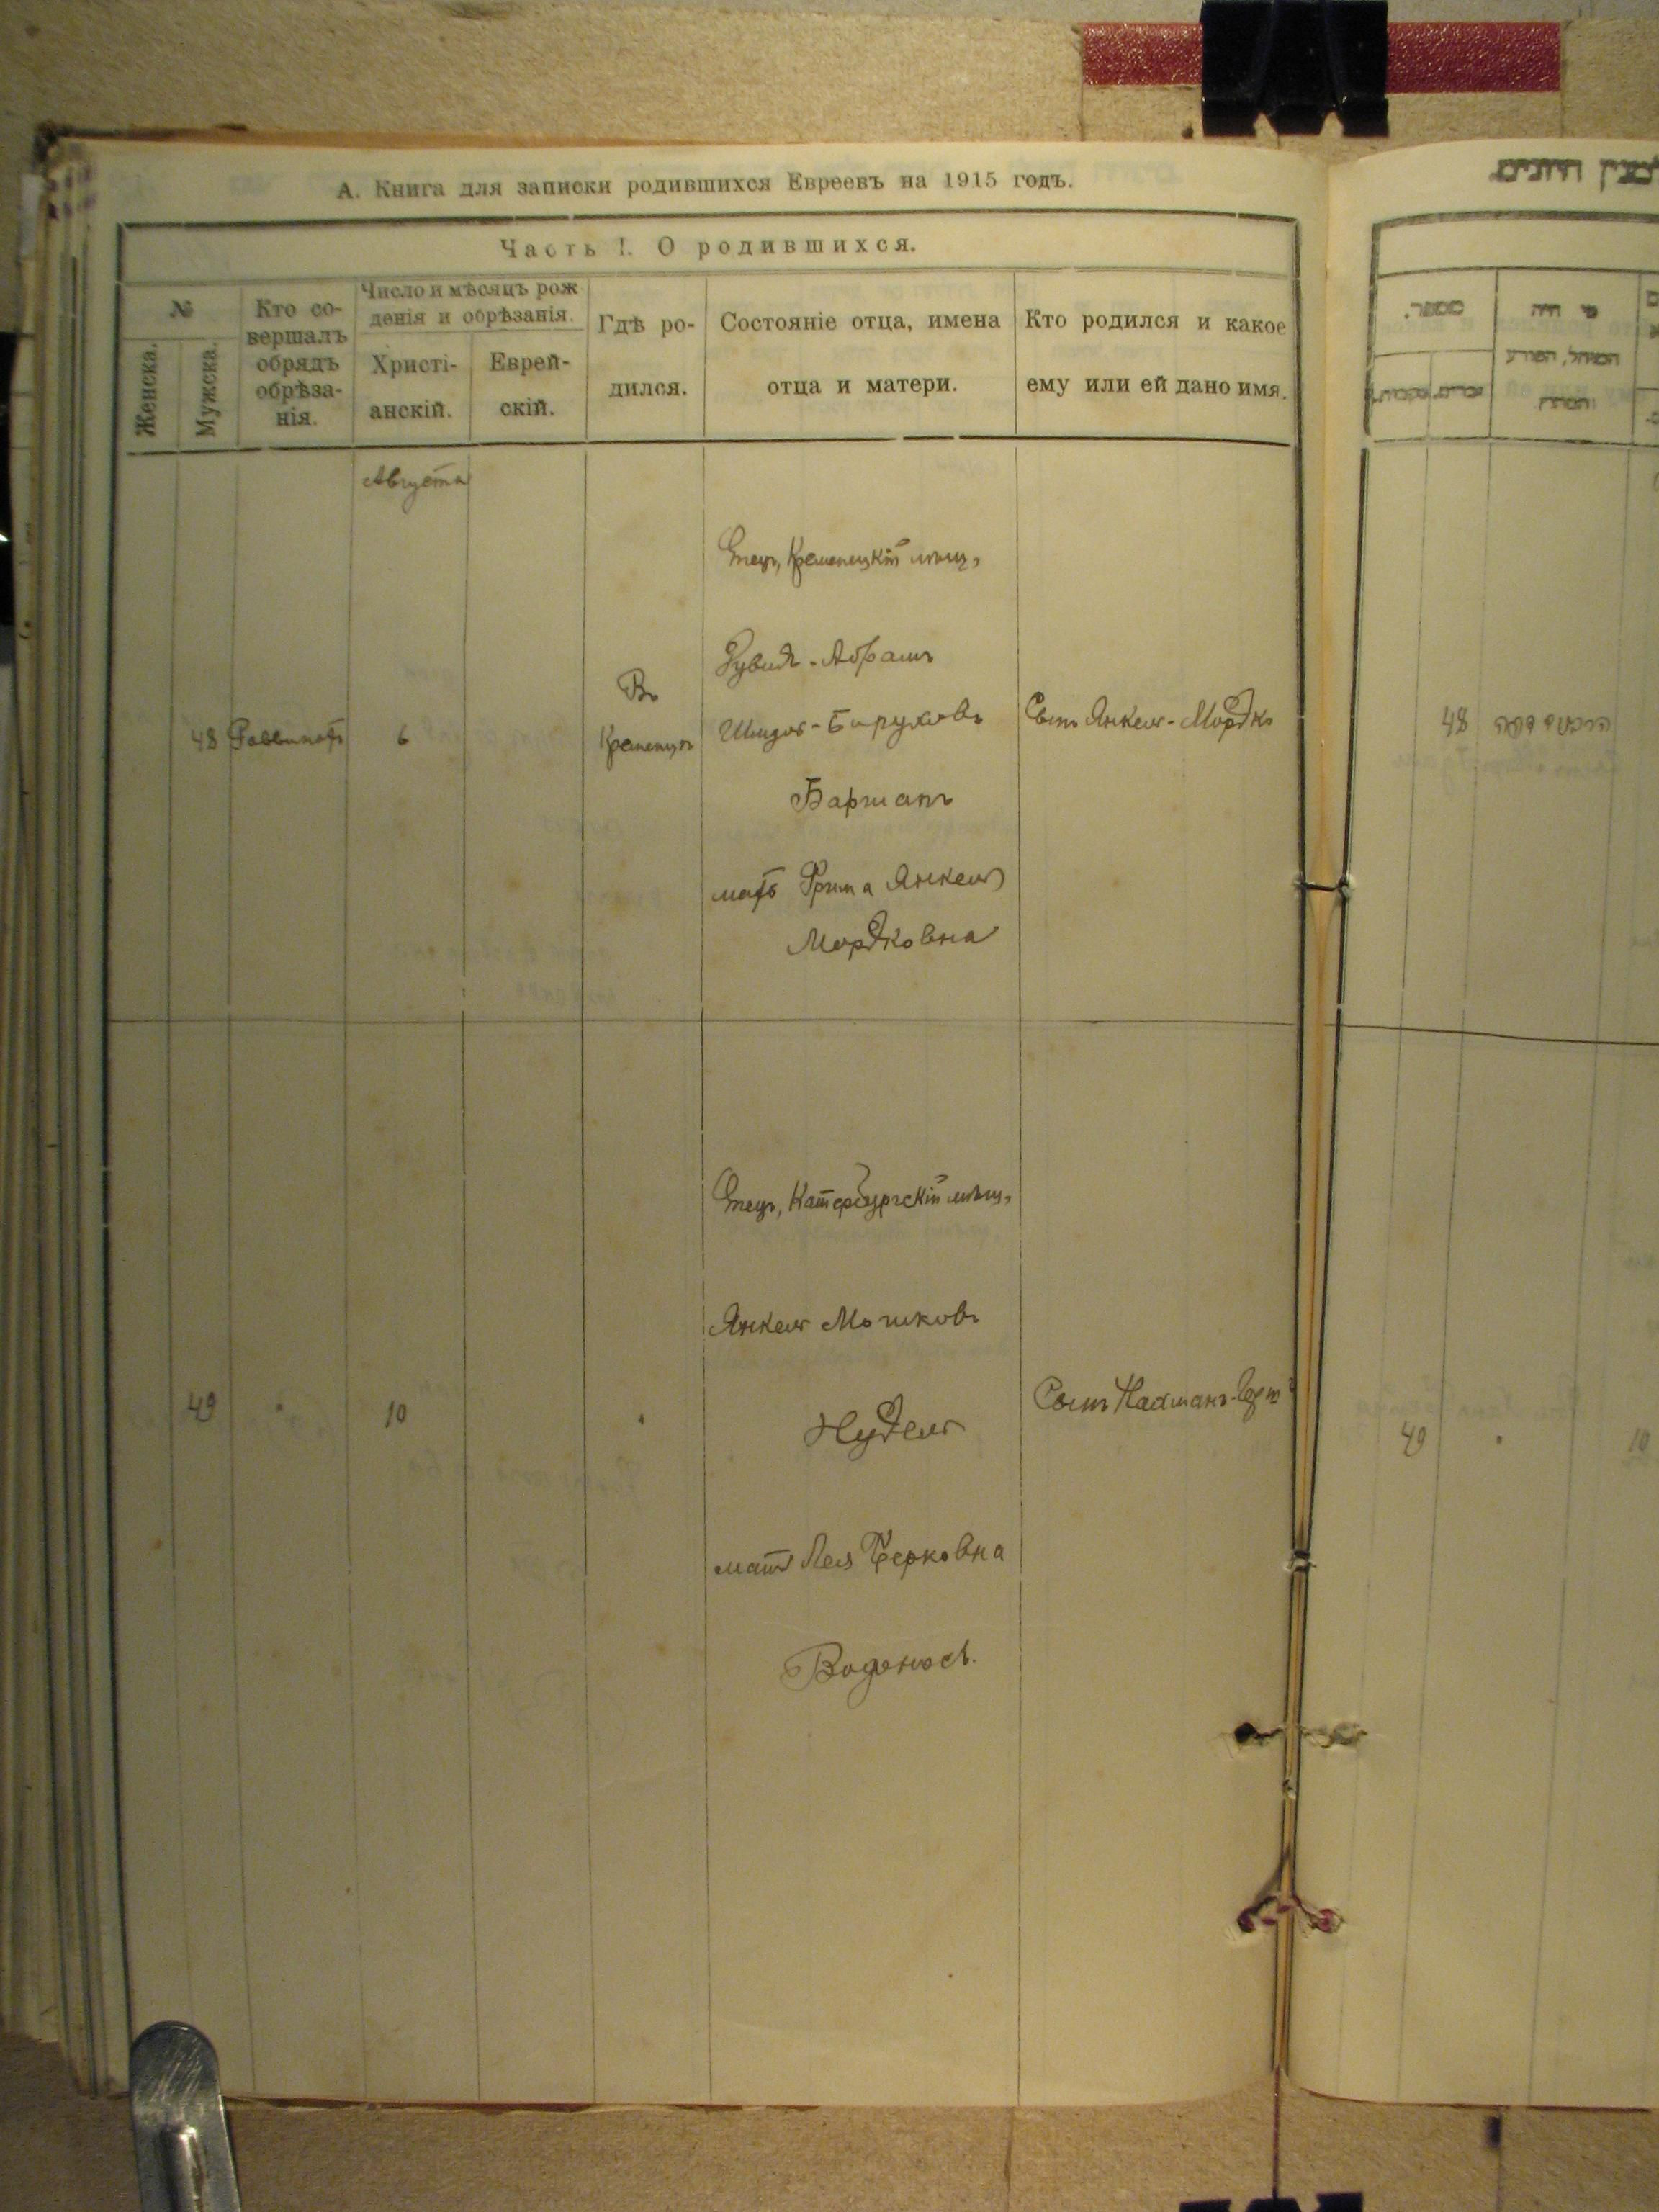 А. Книга для записки родившихся Евреевъ на 1915 годъ.
Часть I. О родившихся.
№
Женска.
Мужска.
Кто со-
вершалъ
обрядъ
обрѣза-
нія.
Число и мѣсяцъ рож
денія и обрѣзанія.
Христі-
анскій.
Еврей-
скій.
Гдѣ ро-
дился.
Состояніе отца, имена
отца и матери.
Кто родился и какое
ему или ей дано имя.
Августа
48
6
Въ
Кременцѣ
Отецъ, Кременецкій мѣщ.
Абрамъ
Баруховъ
мать Фрима Янкель
Мордковна
Сынъ Янкель-Мордко
49
10
Отецъ, Катербургскій мѣщ.
Янкель Мошковъ
Нудель
мать Лея Берковна
Водоносъ.
Сынъ Нахманъ
מספר.
מי היה
המוהל, הפורע
48
49
10